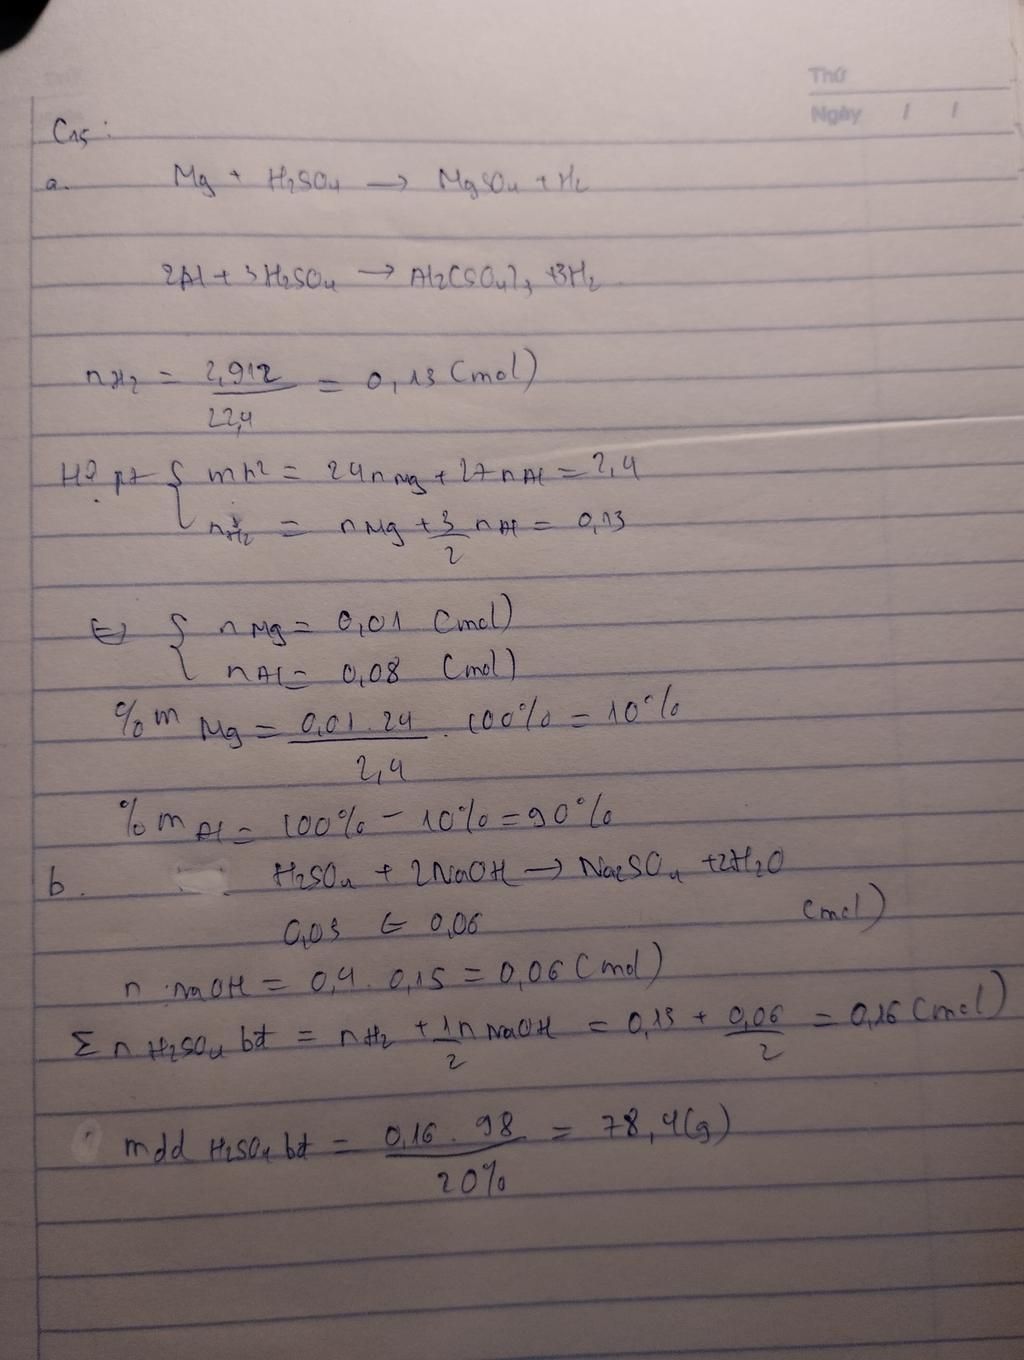 Thứ
Ngày / /
C15:
a. Mg + H2SO4 → MgSO4 + H2
2Al + 3H2SO4 → Al2(SO4)3 + 3H2
nH2 = 2,912/22,4 = 0,13 (mol)
Hệ pt { m h2 = 24nMg + 27nAl = 2,4
nH2 = nMg + 3/2 nAl = 0,13
⇔ { nMg = 0,01 (mol)
nAl = 0,08 (mol)
%m Mg = 0,01.24/2,4 . 100% = 10%
%m Al = 100% - 10% = 90%
b. H2SO4 + 2NaOH → Na2SO4 + 2H2O
0,03 ← 0,06 (mol)
n NaOH = 0,4 . 0,15 = 0,06 (mol)
Σ n H2SO4 bđ = nH2 + 1/2 n NaOH = 0,13 + 0,06/2 = 0,16 (mol)
mdd H2SO4 bđ = 0,16 . 98/20% = 78,4 (g)